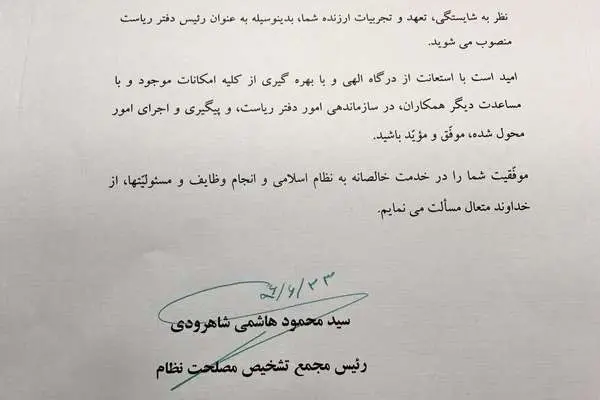 نظر به شایستگی، تعهد و تجربیات ارزنده شما، بدینوسیله به عنوان رئیس دفتر ریاست
منصوب می شوید.
امید است با استعانت از درگاه الهی و با بهره گیری از کلیه امکانات موجود و با
مساعدت دیگر همکاران، در سازماندهی امور دفتر ریاست، و پیگیری و اجرای امور
محول شده، موفّق و مؤیّد باشید.
موفّقیت شما را در خدمت خالصانه به نظام اسلامی و انجام وظایف و مسئولیّتها، از
خداوند متعال مسألت می نمایم.
سید محمود هاشمی شاهرودی
رئیس مجمع تشخیص مصلحت نظام